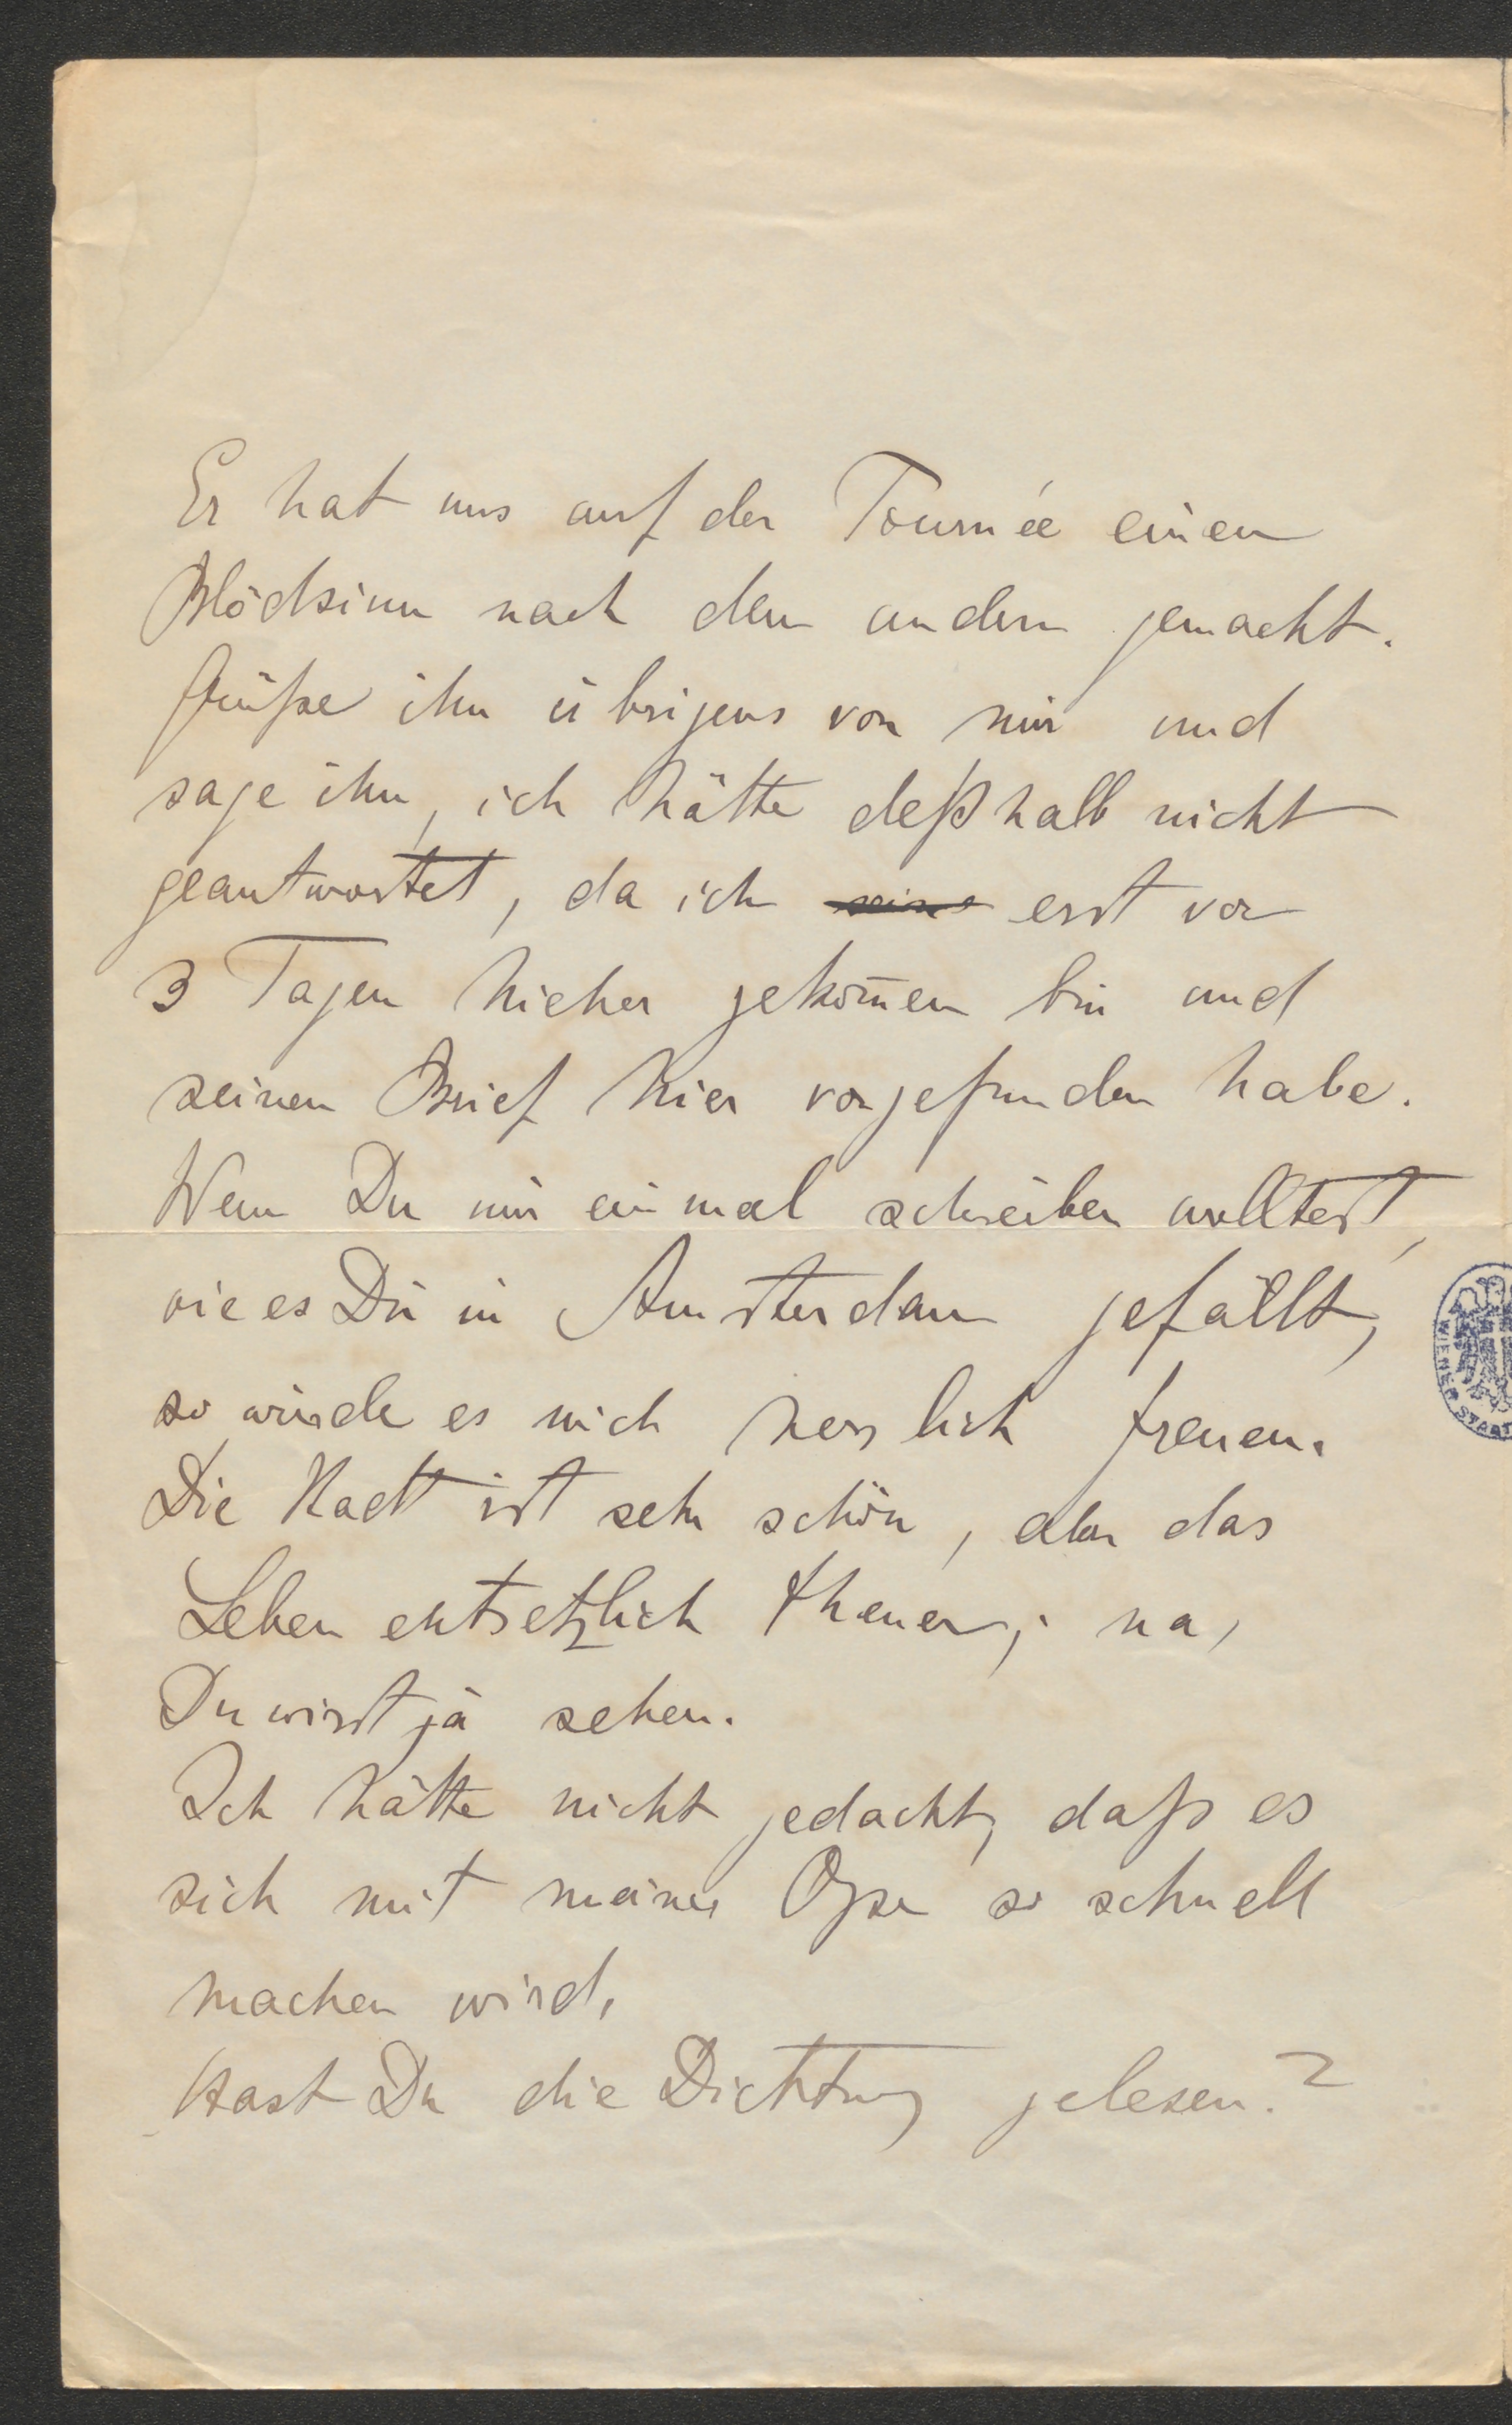 Er hat uns auf der Tournée einen
Blödsinn nach dem andern gemacht.
Grüße ihn übrigens von mir und
sage ihm, ich hätte deßhalb nicht
geantwortet, da ich seine erst vor
3 Tagen hieher gekom̄en bin und
seinen Brief hier vorgefunden habe.
Wenn Du mir einmal schreiben wolltest,
wie es Dir in Amsterdam gefällt,
so würde es mich herzlich freuen.
Die Stadt ist sehr schön, aber das
Leben entsetzlich theuer; na,
Du wirst ja sehen.
Ich hätte nicht gedacht, daß es
sich mit meiner Oper so schnell
machen wird.
Hast Du die Dichtung gelesen?
WIENER STADT